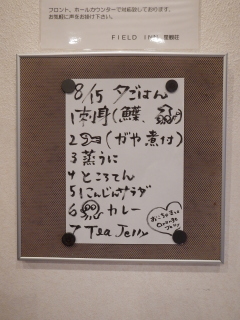 フロント、ホールカウンターで対応致しております。
お気軽に声をお掛け下さい。
FIELD INN 星観荘
8/15 夕ごはん
1 刺身(鰈、
2 (がや煮付)
3 蒸うに
4 ところてん
5 にんじんサラダ
6 カレー
7 Tea Jelly
Orange
Jelly